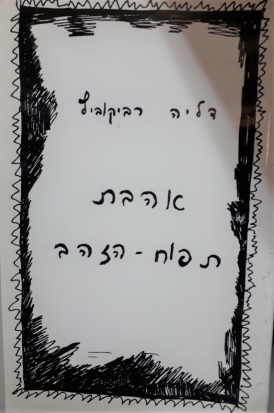 דליה רביקוביץ
אהבת
תפוח-הזהב